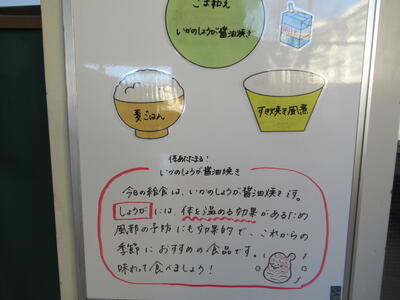 ごま和え
いかのしょうが醤油焼き
麦ごはん
すき焼き風煮
体あたたまる！
いかのしょうが醤油焼き
今日の給食は、いかのしょうが醤油焼きです。
しょうがには、体を温める効果があるため
風邪の予防にも効果的で、これからの
季節におすすめの食品です。
味わって食べましょう！